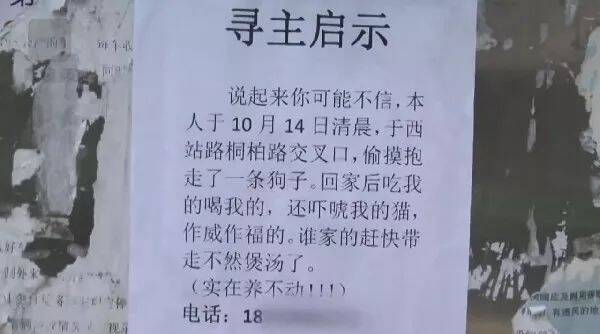 寻主启示
说起来你可能不信，本
人于10月14日清晨，于西
站路桐柏路交叉口，偷摸抱
走了一条狗子。回家后吃我
的喝我的，还吓唬我的猫，
作威作福的。谁家的赶快带
走不然煲汤了。
（实在养不动!!!）
电话：18